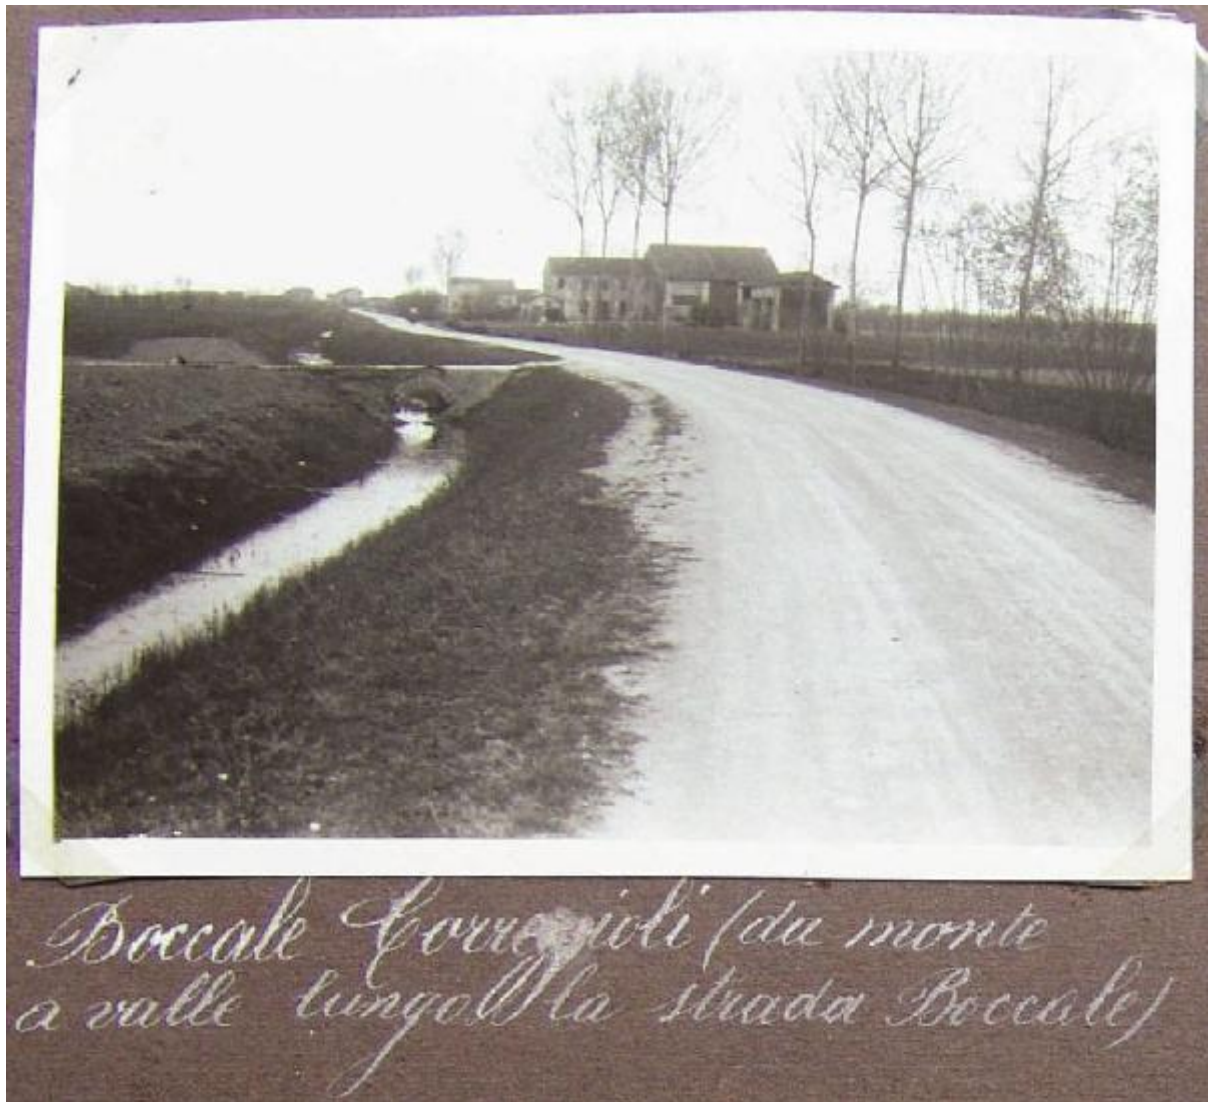 Boccale Correggioli (da monte
a valle lungo la strada Boccale)